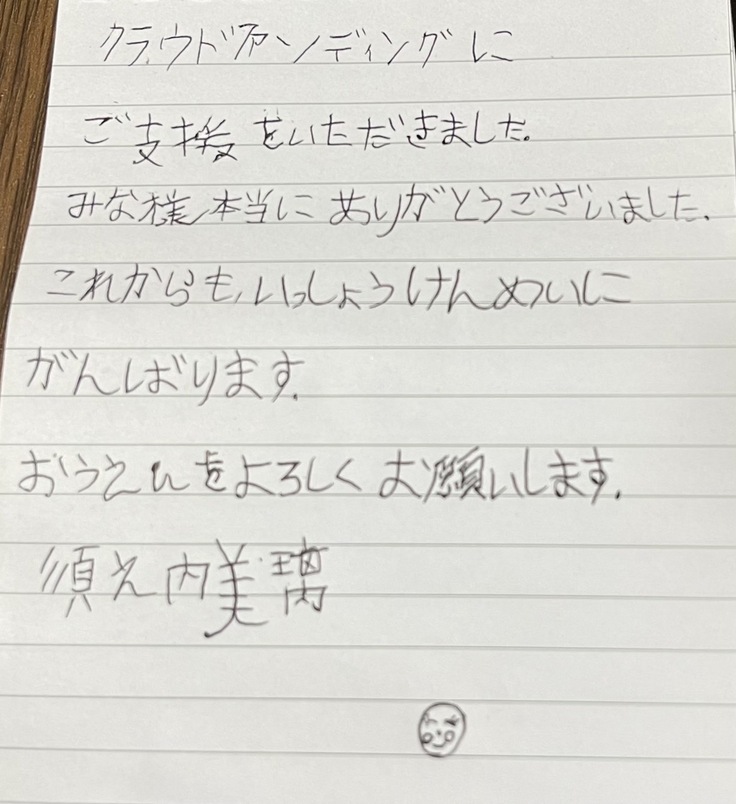 クラウドファンディングに
ご支援をいただきました。
みな様本当にありがとうございました。
これからも、いっしょうけんめいに
がんばります。
おうえんをよろしくお願いします。
須え内美璃